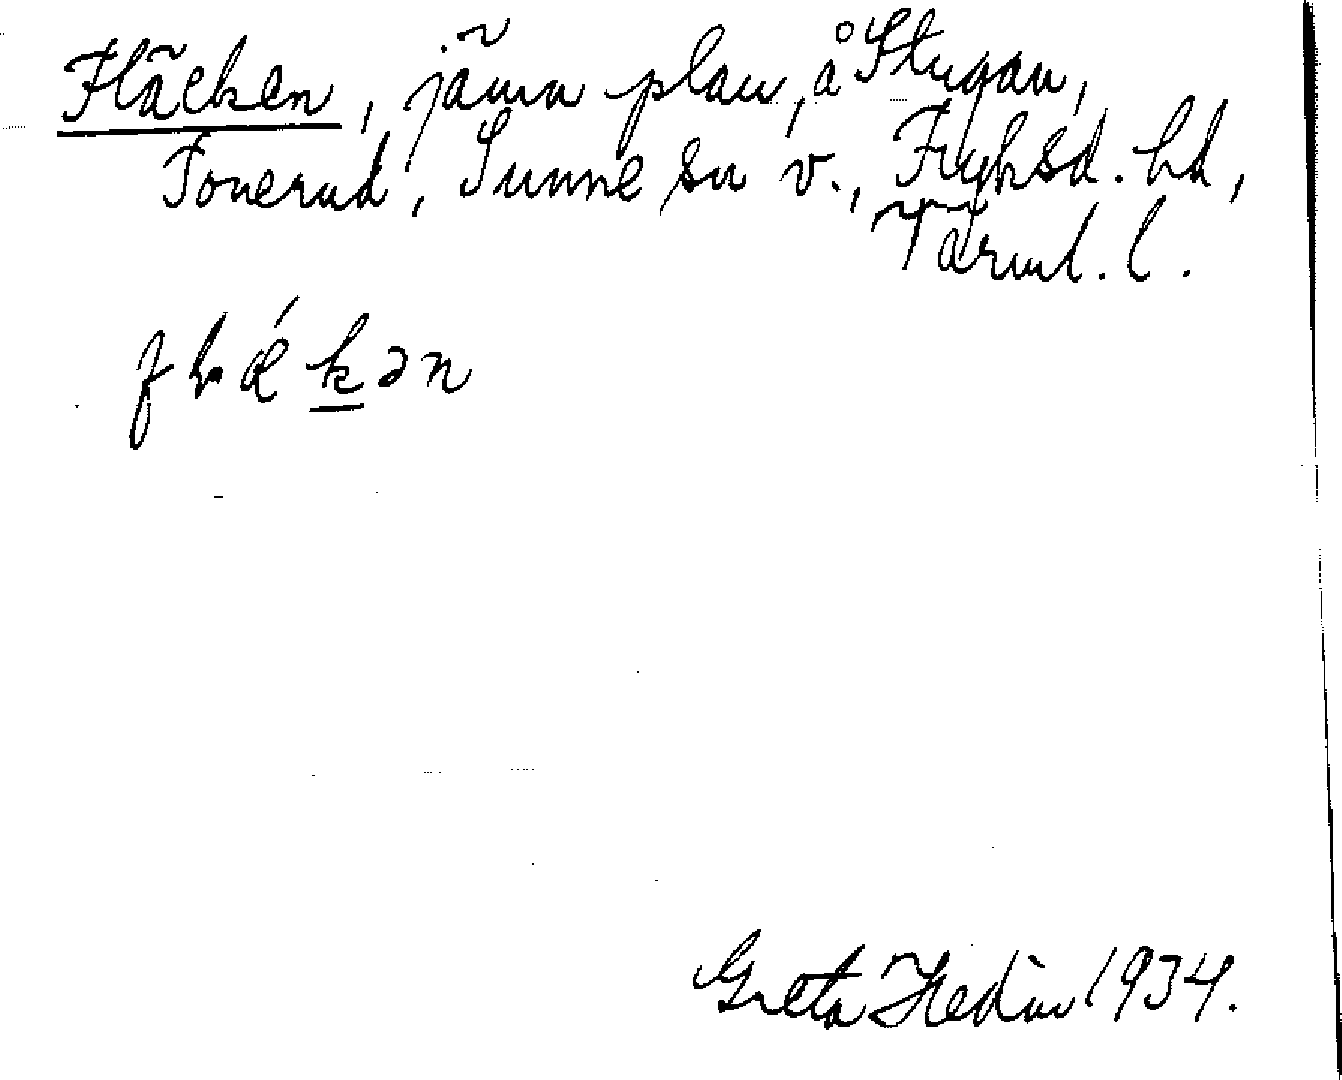 Fläcken, jämn plan, å Stugan,
Tonerud, Sunne sn v., Fryksd. hd,
Värml. l.
flǽkən
Greta Hedin 1934.